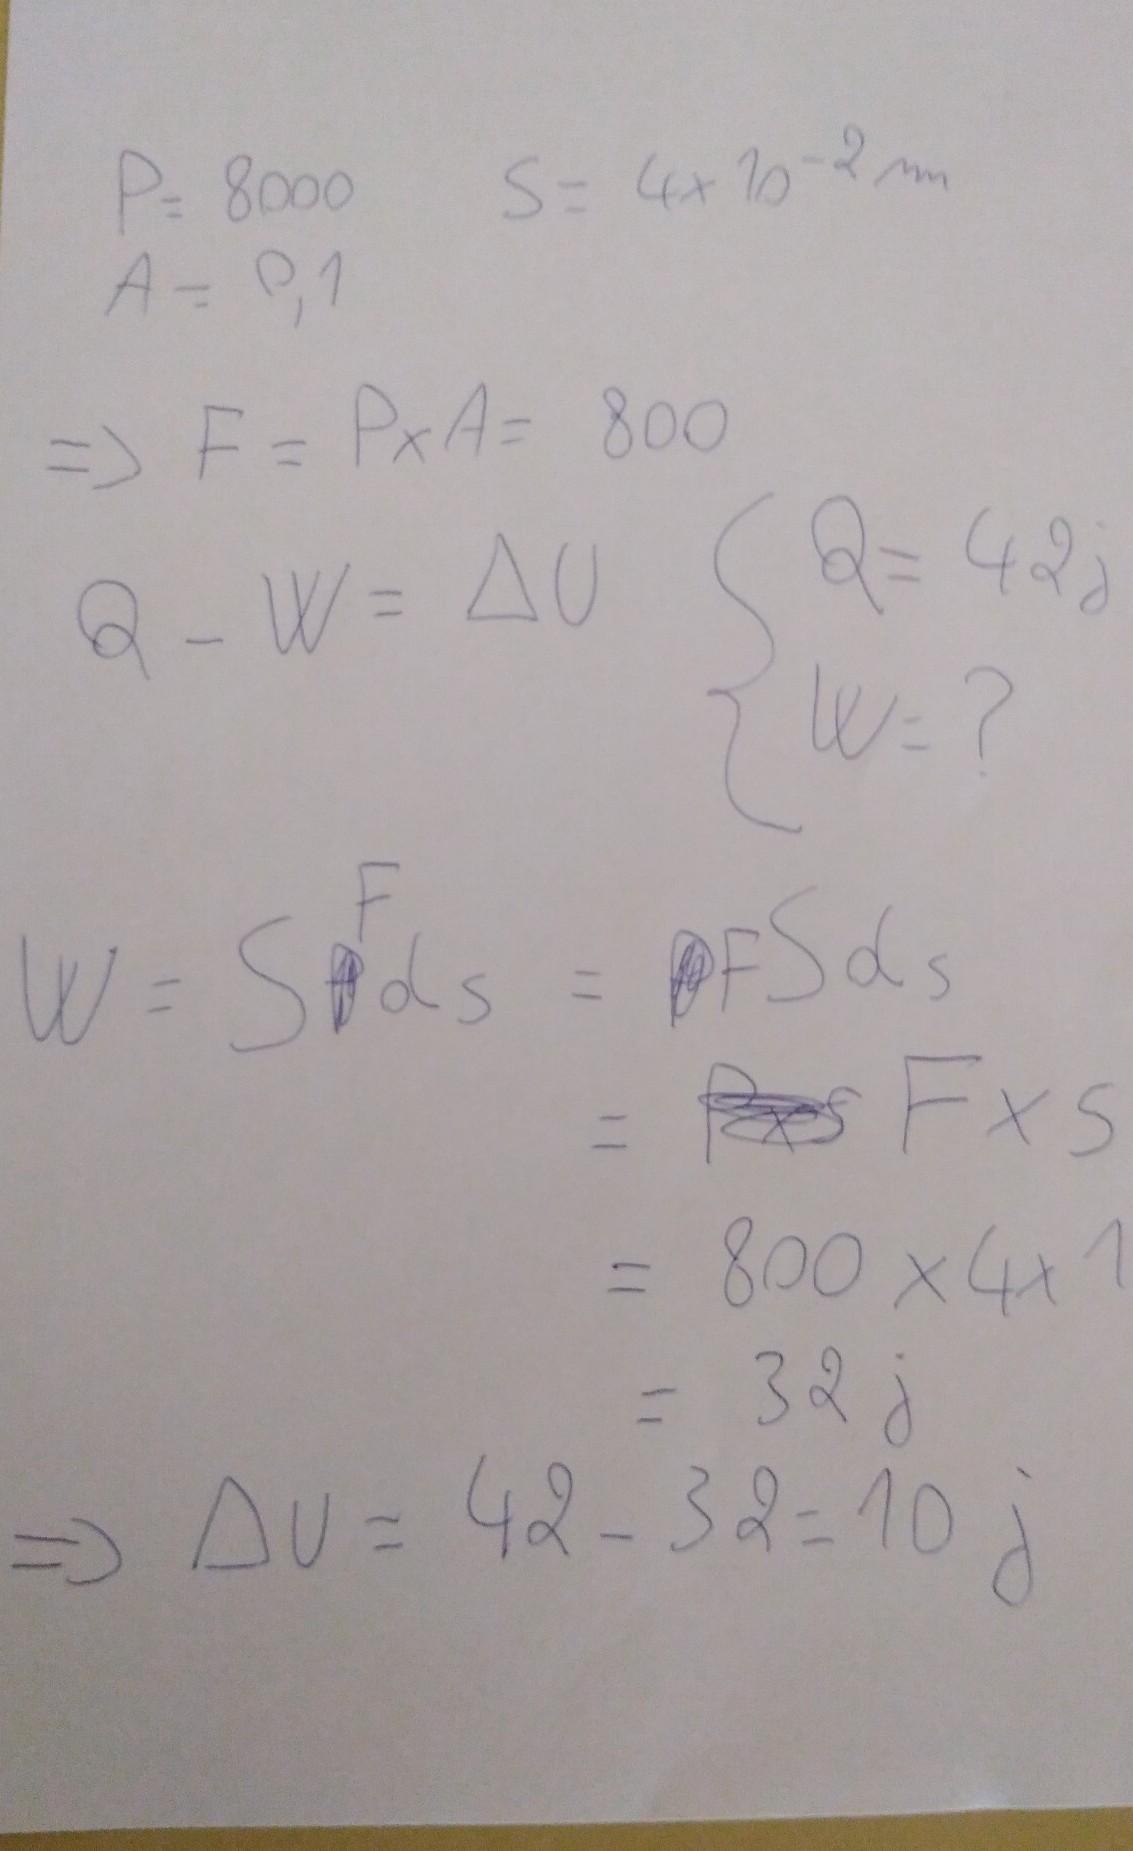 P= 8000 S= 4x10⁻² m
A= 0,1
=> F = PxA= 800
Q - W = ΔU { Q= 42j
W= ?
W = ∫Fds = F∫ds
= Fxs
= 800 x4x1
= 32 j
=> ΔU = 42-32=10 j